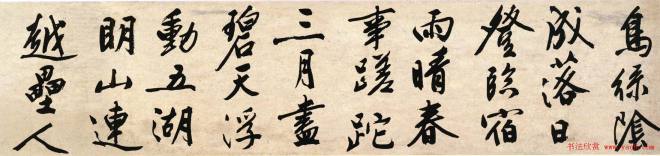 鳥絲隂
成落日
登臨宿
雨晴春
事蹉跎
三月盡
碧天浮
動五湖
明山連
越壘人
书法欣赏